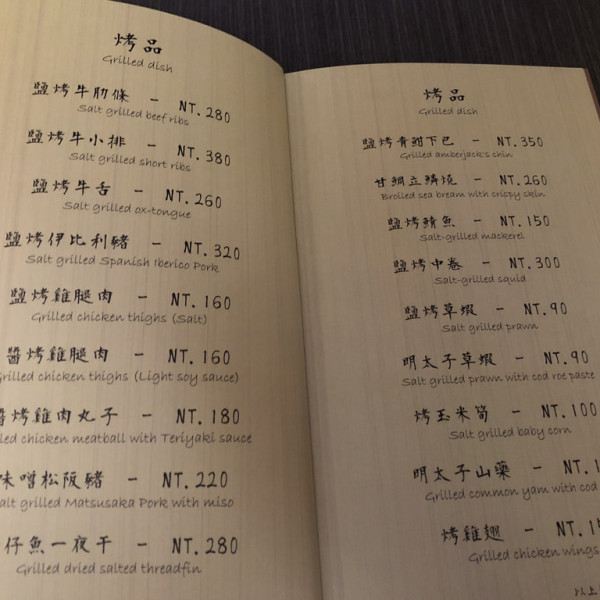 烤品
Grilled dish
鹽烤牛肋條 – NT.280
Salt grilled beef ribs
鹽烤牛小排 – NT.380
Salt grilled short ribs
鹽烤牛舌 – NT.260
Salt grilled ox-tongue
鹽烤伊比利豬 – NT.320
Salt grilled Spanish Iberico Pork
鹽烤雞腿肉 – NT.160
Grilled chicken thighs (Salt)
醬烤雞腿肉 – NT.160
Grilled chicken thighs (Light soy sauce)
醬烤雞肉丸子 – NT.180
chicken meatball with Teriyaki sauce
味噌松阪豬 – NT.220
grilled Matsusaka Pork with miso
仔魚一夜干 – NT.280
Grilled dried salted threadfin
烤品
Grilled dish
鹽烤青魽下巴 – NT.350
Grilled amberjack's chin
甘鯛立鱗燒 – NT.260
Broiled sea bream with crispy skin
鹽烤鯖魚 – NT.150
Salt-grilled mackerel
鹽烤中卷 – NT.300
Salt-grilled squid
鹽烤草蝦 – NT.90
Salt grilled prawn
明太子草蝦 – NT.90
Salt grilled prawn with cod roe paste
烤玉米筍 – NT.100
Salt grilled baby corn
明太子山藥 – NT.
Grilled common yam with cod
烤雞翅 – NT.
Grilled chicken wings
以上